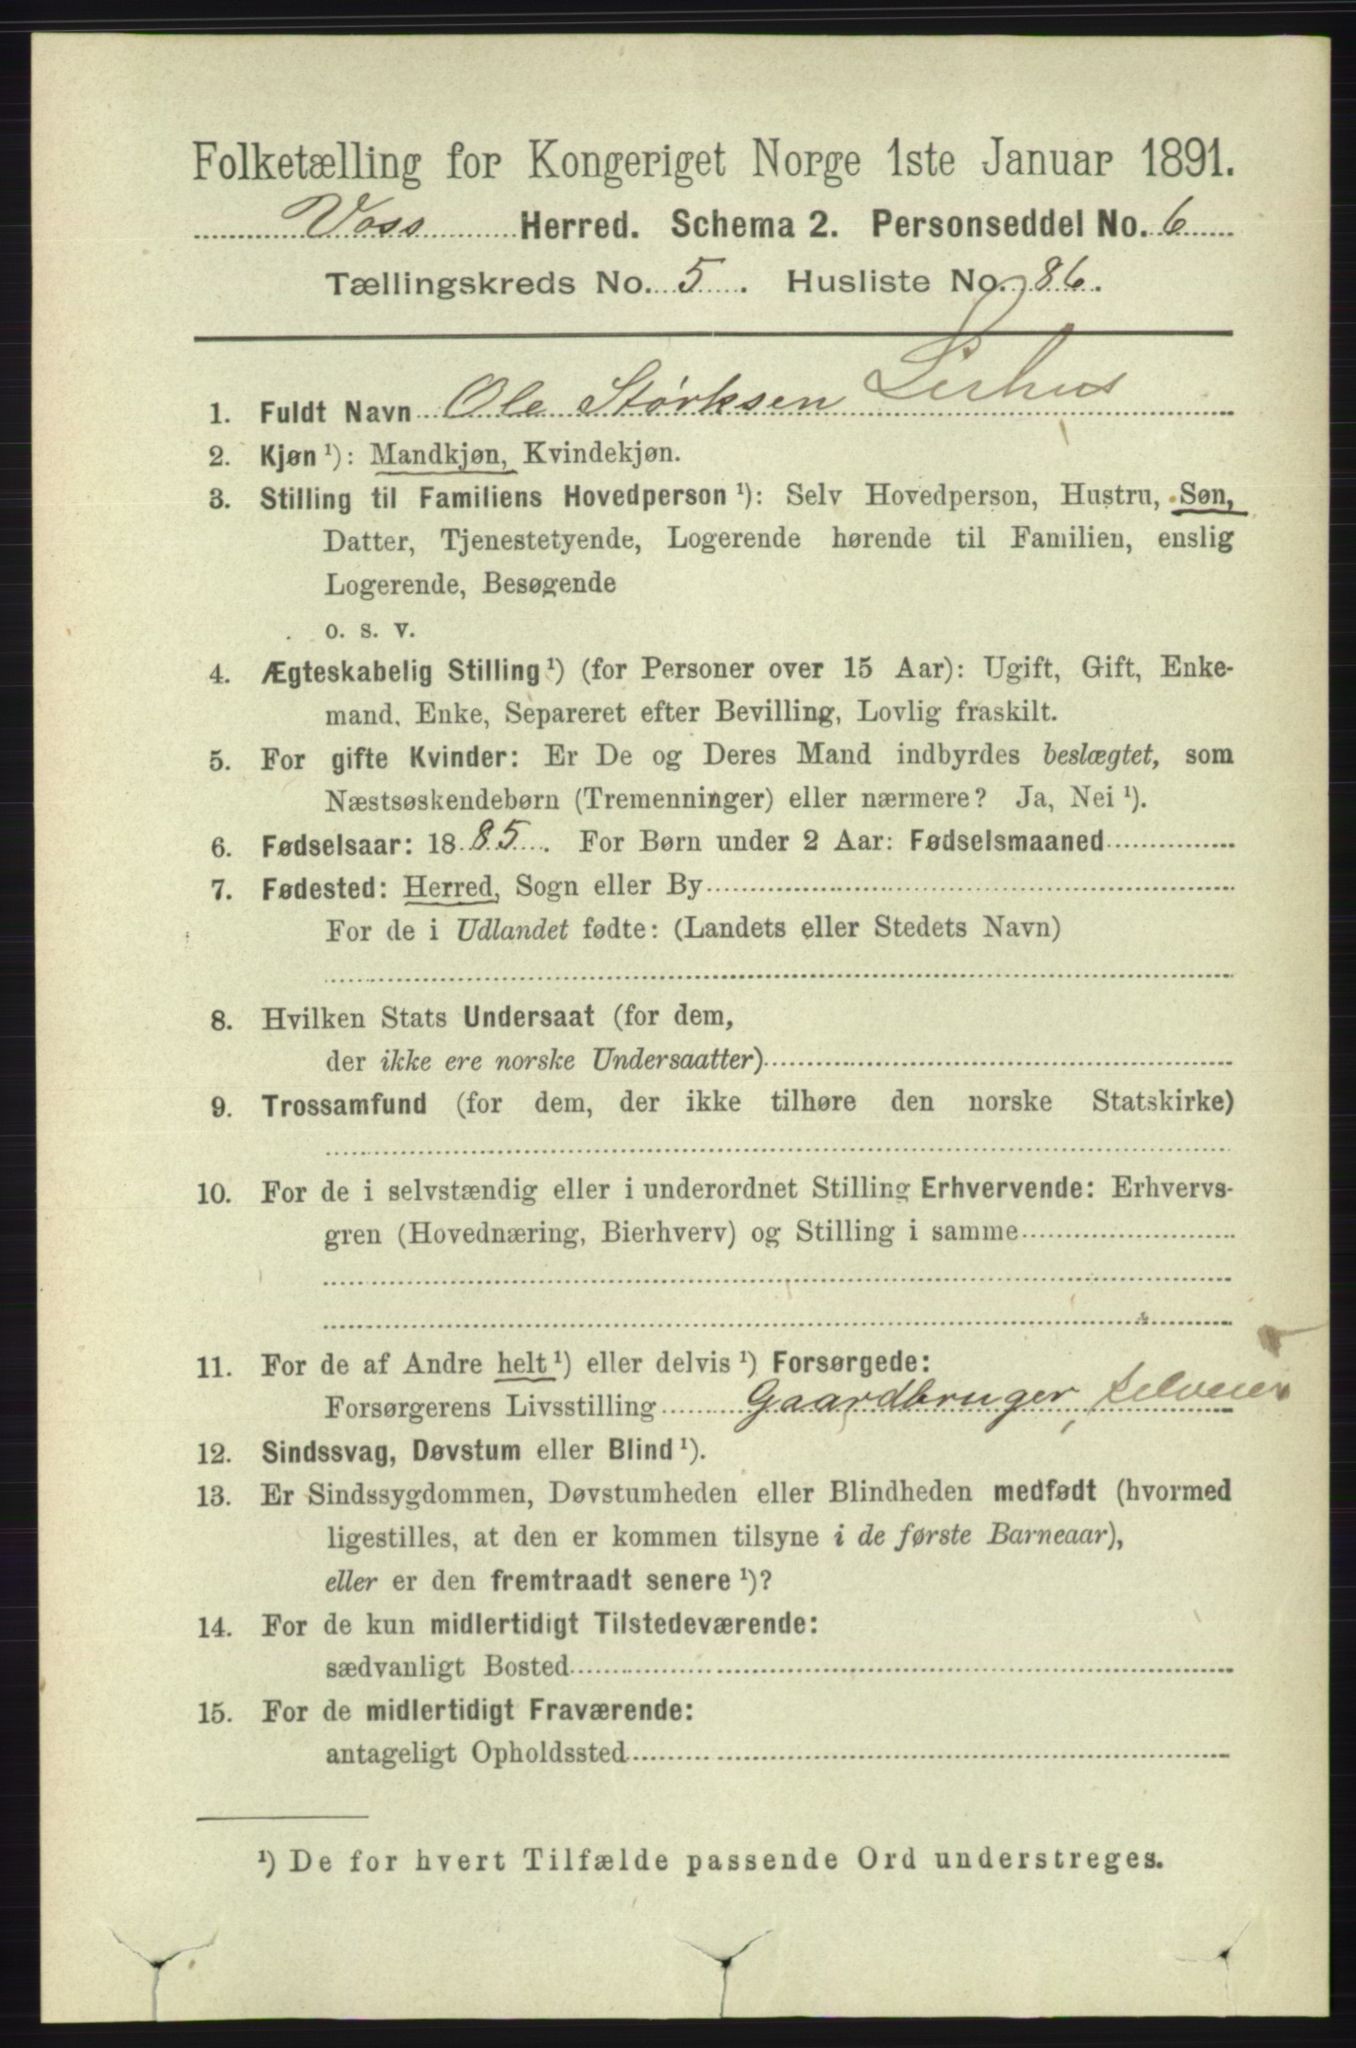 Folketælling for Kongeriget Norge 1ste Januar 1891.
Voss Herred. Schema 2. Personseddel No. 6
Tællingskreds No. 5. Husliste No. 86.
1. Fuldt Navn Ole Størksen Lirhus
2. Kjøn ¹): Mandkjøn, Kvindekjøn.
3. Stilling til Familiens Hovedperson ¹): Selv Hovedperson, Hustru, Søn,
Datter, Tjenestetyende, Logerende hørende til Familien, enslig
Logerende, Besøgende
o. s. v.
4. Ægteskabelig Stilling ¹) (for Personer over 15 Aar): Ugift, Gift, Enke-
mand, Enke, Separeret efter Bevilling, Lovlig fraskilt.
5. For gifte Kvinder: Er De og Deres Mand indbyrdes beslægtet, som
Næstsøskendebørn (Tremenninger) eller nærmere? Ja, Nei ¹).
6. Fødselsaar: 1885. For Børn under 2 Aar: Fødselsmaaned
7. Fødested: Herred, Sogn eller By
For de i Udlandet fødte: (Landets eller Stedets Navn)
8. Hvilken Stats Undersaat (for dem,
der ikke ere norske Undersaatter)
9. Trossamfund (for dem, der ikke tilhøre den norske Statskirke)
10. For de i selvstændig eller i underordnet Stilling Erhvervende: Erhvervs-
gren (Hovednæring, Bierhverv) og Stilling i samme
11. For de af Andre helt ¹) eller delvis ¹) Forsørgede:
Forsørgerens Livsstilling Gaardbruger, selveier
12. Sindssvag, Døvstum eller Blind ¹).
13. Er Sindssygdommen, Døvstumheden eller Blindheden medfødt (hvormed
ligestilles, at den er kommen tilsyne i de første Barneaar),
eller er den fremtraadt senere ¹)?
14. For de kun midlertidigt Tilstedeværende:
sædvanligt Bosted
15. For de midlertidigt Fraværende:
antageligt Opholdssted
¹) De for hvert Tilfælde passende Ord understreges.